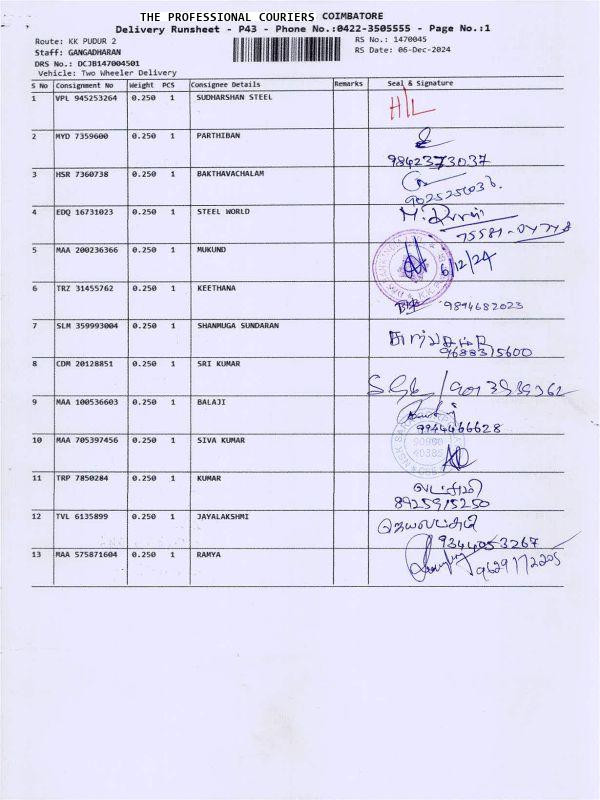 THE PROFESSIONAL COURIERS COIMBATORE
Delivery Runsheet - P43 - Phone No.:0422-3505555 - Page No.:1
Route: KK PUDUR 2
RS No.: 1470045
Staff: GANGADHARAN
RS Date: 06-Dec-2024
DRS No.: DCJB147004501
Vehicle: Two Wheeler Delivery
S No Consignment No Weight PCS Consignee Details Remarks Seal & Signature
1 VPL 945253264 0.250 1 SUDHARSHAN STEEL H/L
2 MYD 7359600 0.250 1 PARTHIBAN
9842373037
3 HSR 7360738 0.250 1 BAKTHAVACHALAM
4 EDQ 16731023 0.250 1 STEEL WORLD
5 MAA 200236366 0.250 1 MUKUND
6/12/24
6 TRZ 31455762 0.250 1 KEETHANA
9894682023
7 SLM 359993004 0.250 1 SHANMUGA SUNDARAN
9688315600
8 CDM 20128851 0.250 1 SRI KUMAR
9 MAA 100536603 0.250 1 BALAJI
9944466628
10 MAA 705397456 0.250 1 SIVA KUMAR
11 TRP 7850284 0.250 1 KUMAR
8925915250
12 TVL 6135899 0.250 1 JAYALAKSHMI
ஜெயலட்சுமி
9344053267
13 MAA 575871604 0.250 1 RAMYA